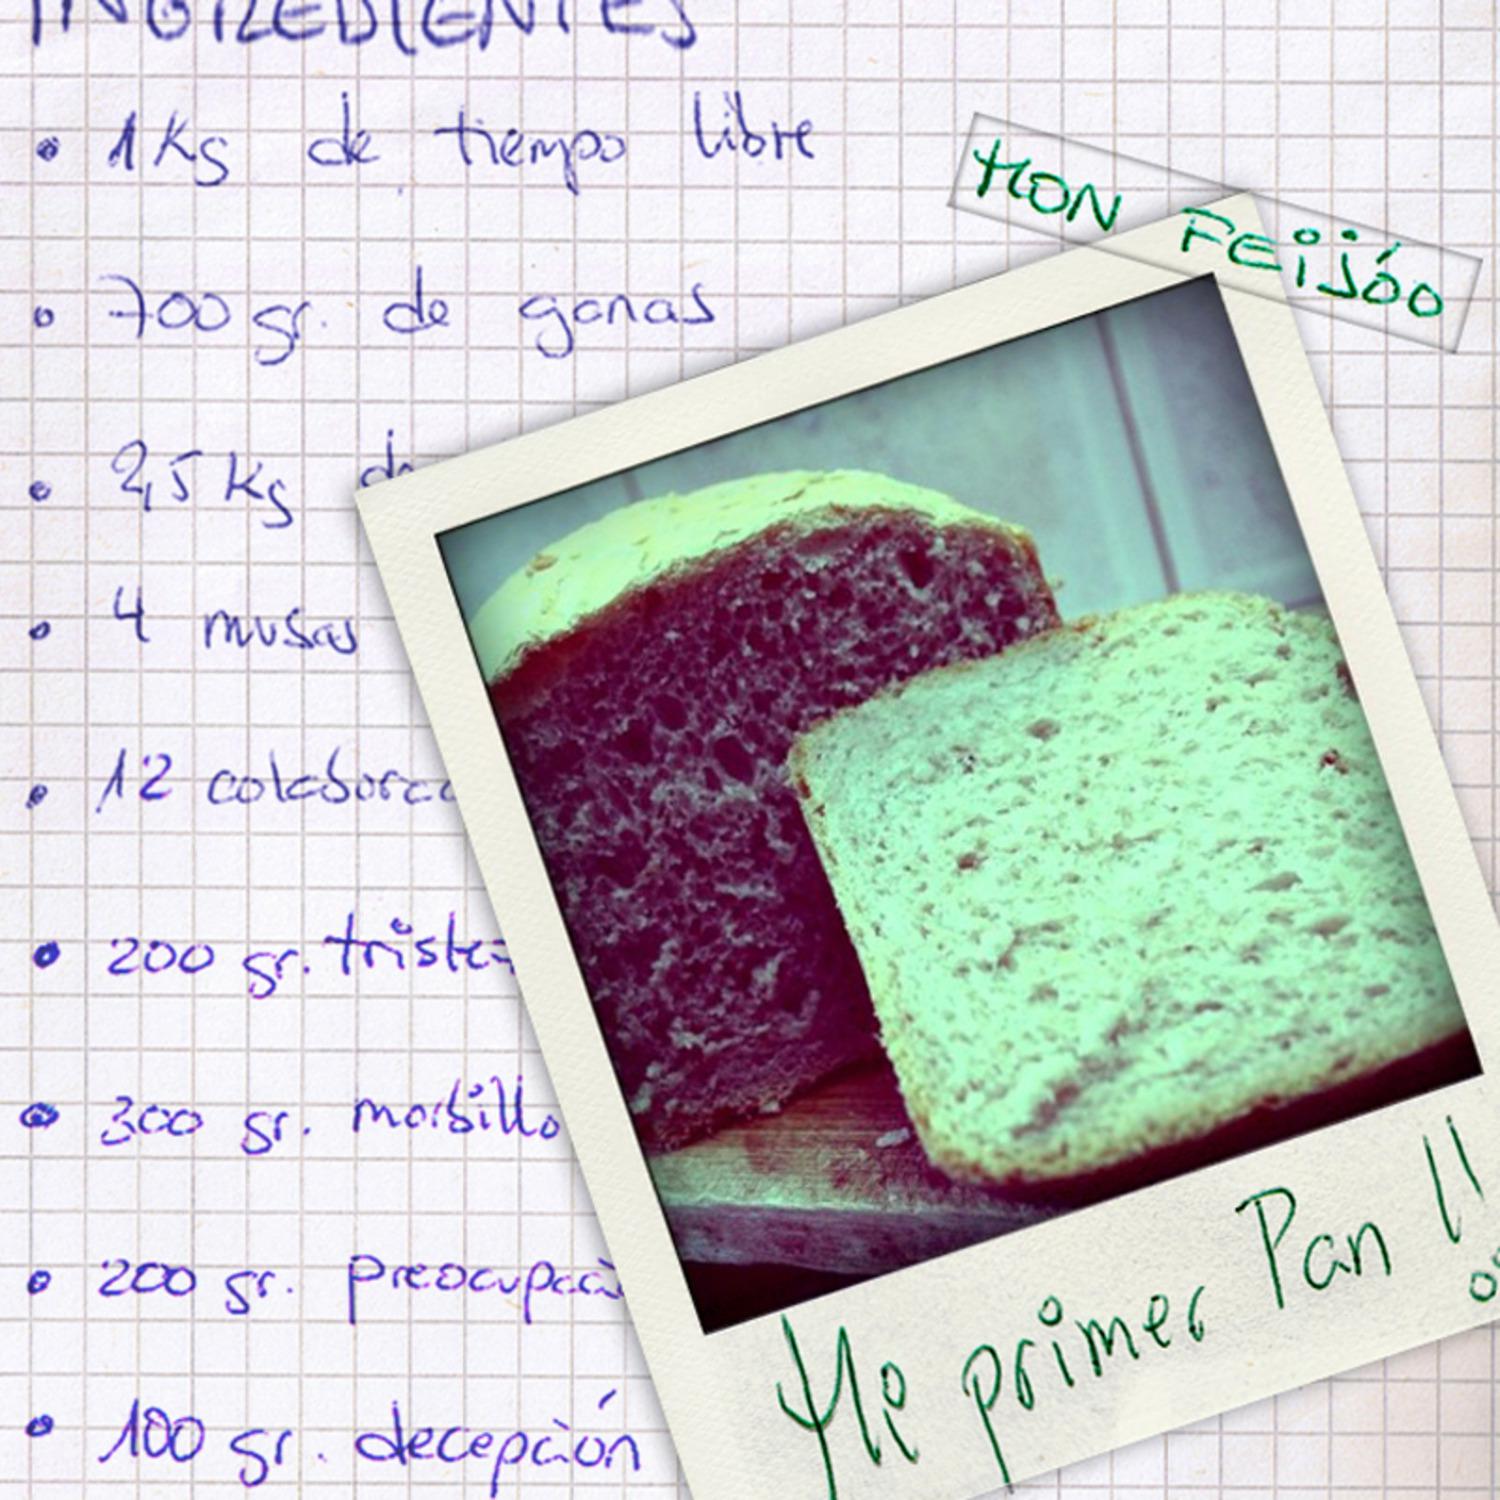 INGREDIENTES
• 1Kg de tiempo libre
• 700 gr. de ganas
• 2,5 Kg de
• 4 musas
• 12 colaborac
• 200 gr. triste
• 300 gr. morbillo
• 200 gr. preocupaci
• 100 gr. decepción
MON FEIJÓO
Mi primer Pan !!